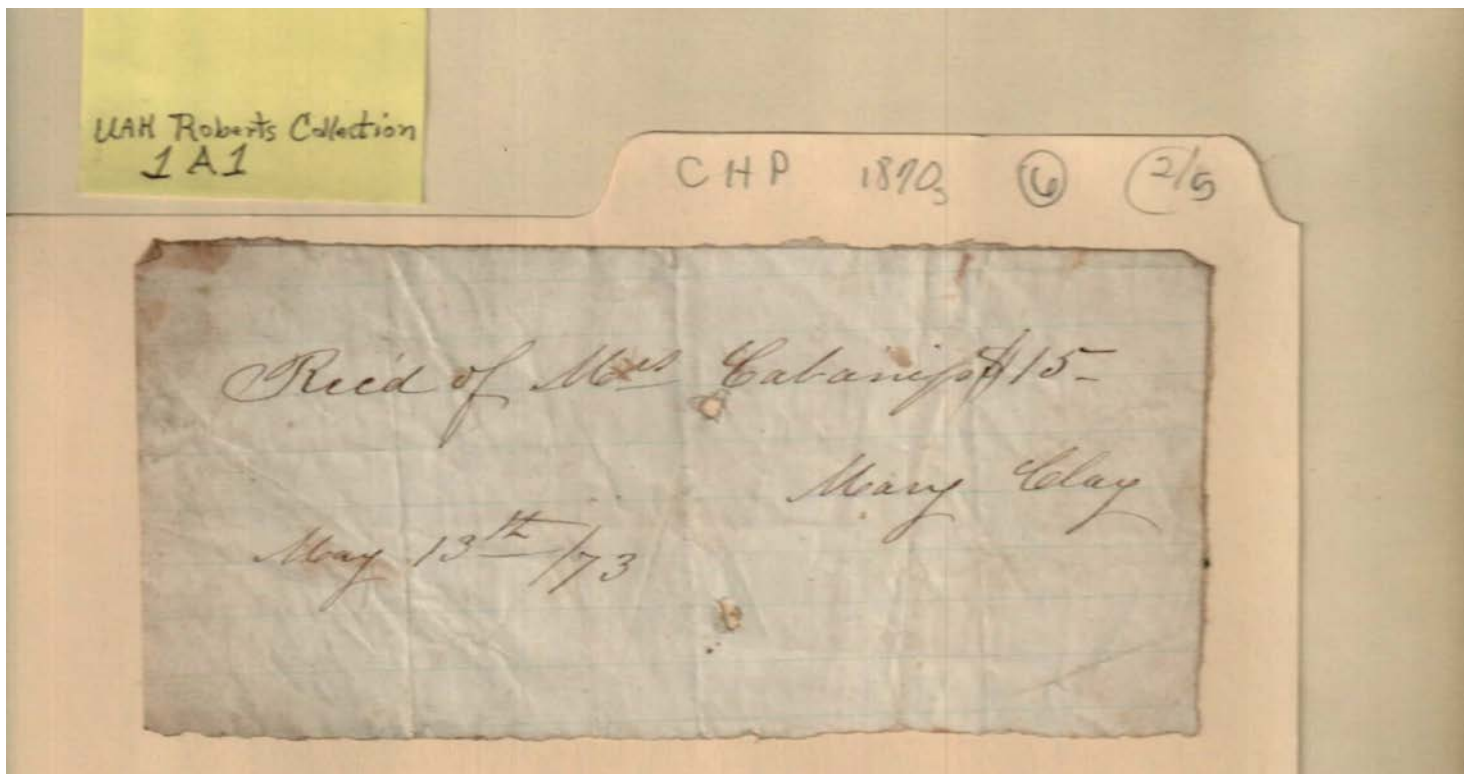 UAH Roberts Collection
1A1
CHP 1870s 6 2/5
Rec'd of Mrs Cabaniss $15-
Mary Clay
May 13th/73